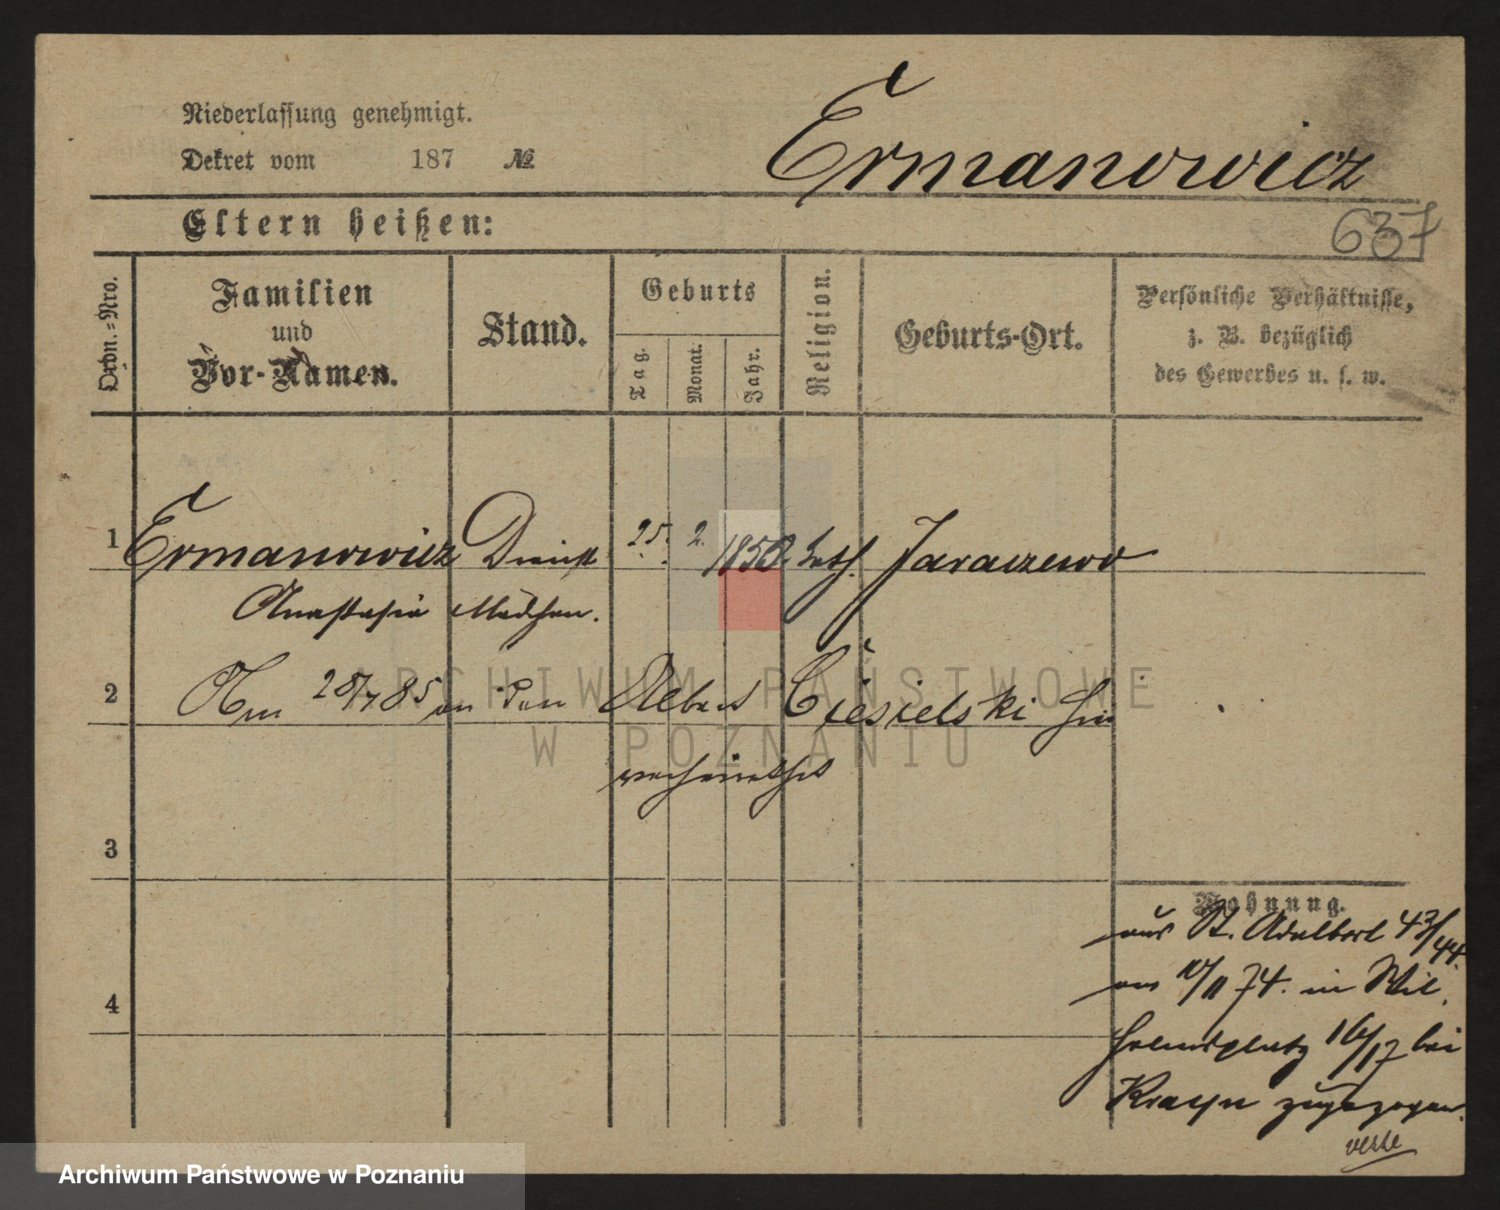 Niederlassung genehmigt.
Dekret vom 187 №
Ermanowicz
Eltern heißen:
637
Ordn.=Nro.
Familien
und
Vor-Namen.
Stand.
Geburts
Tag.
Monat.
Jahr.
Religion.
Geburts-Ort.
Persönliche Verhältnisse,
z. B. bezüglich
des Gewerbes u. s. w.
1 Ermanowicz Dienst 25. 2. 1850. kath. Jaraczewo
Anastasia Mädchen.
2 Am 28/7 85 an den Albert Ciesielski hier
verheirathet
3
Wohnung.
aus St. Adalbert 43/44.
am 10/11 74. in Wil
4
helmsplatz 16/17 bei
Krayn zugezogen.
verte
ARCHIWUM PAŃSTWOWE
W POZNANIU
Archiwum Państwowe w Poznaniu